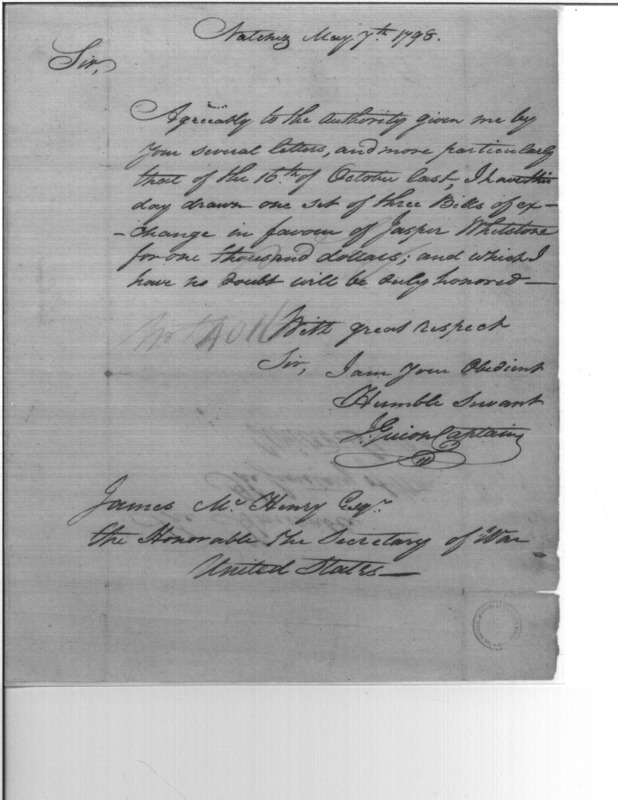 Natchez May 7th. 1798.
Sir,
Agreeably to the authority given me by
your several letters, and more particularly
that of the 16th. of October last, I have this
day drawn one set of three Bills of ex-
-change in favour of Jasper Whitstone
for one thousand dollars; and which I
have no doubt will be duly honored—
With great respect
Sir, I am your Obedient
Humble Servant
J. Guion Captain
James Mc. Henry Esqr.
the Honorable The Secretary of War
United States—